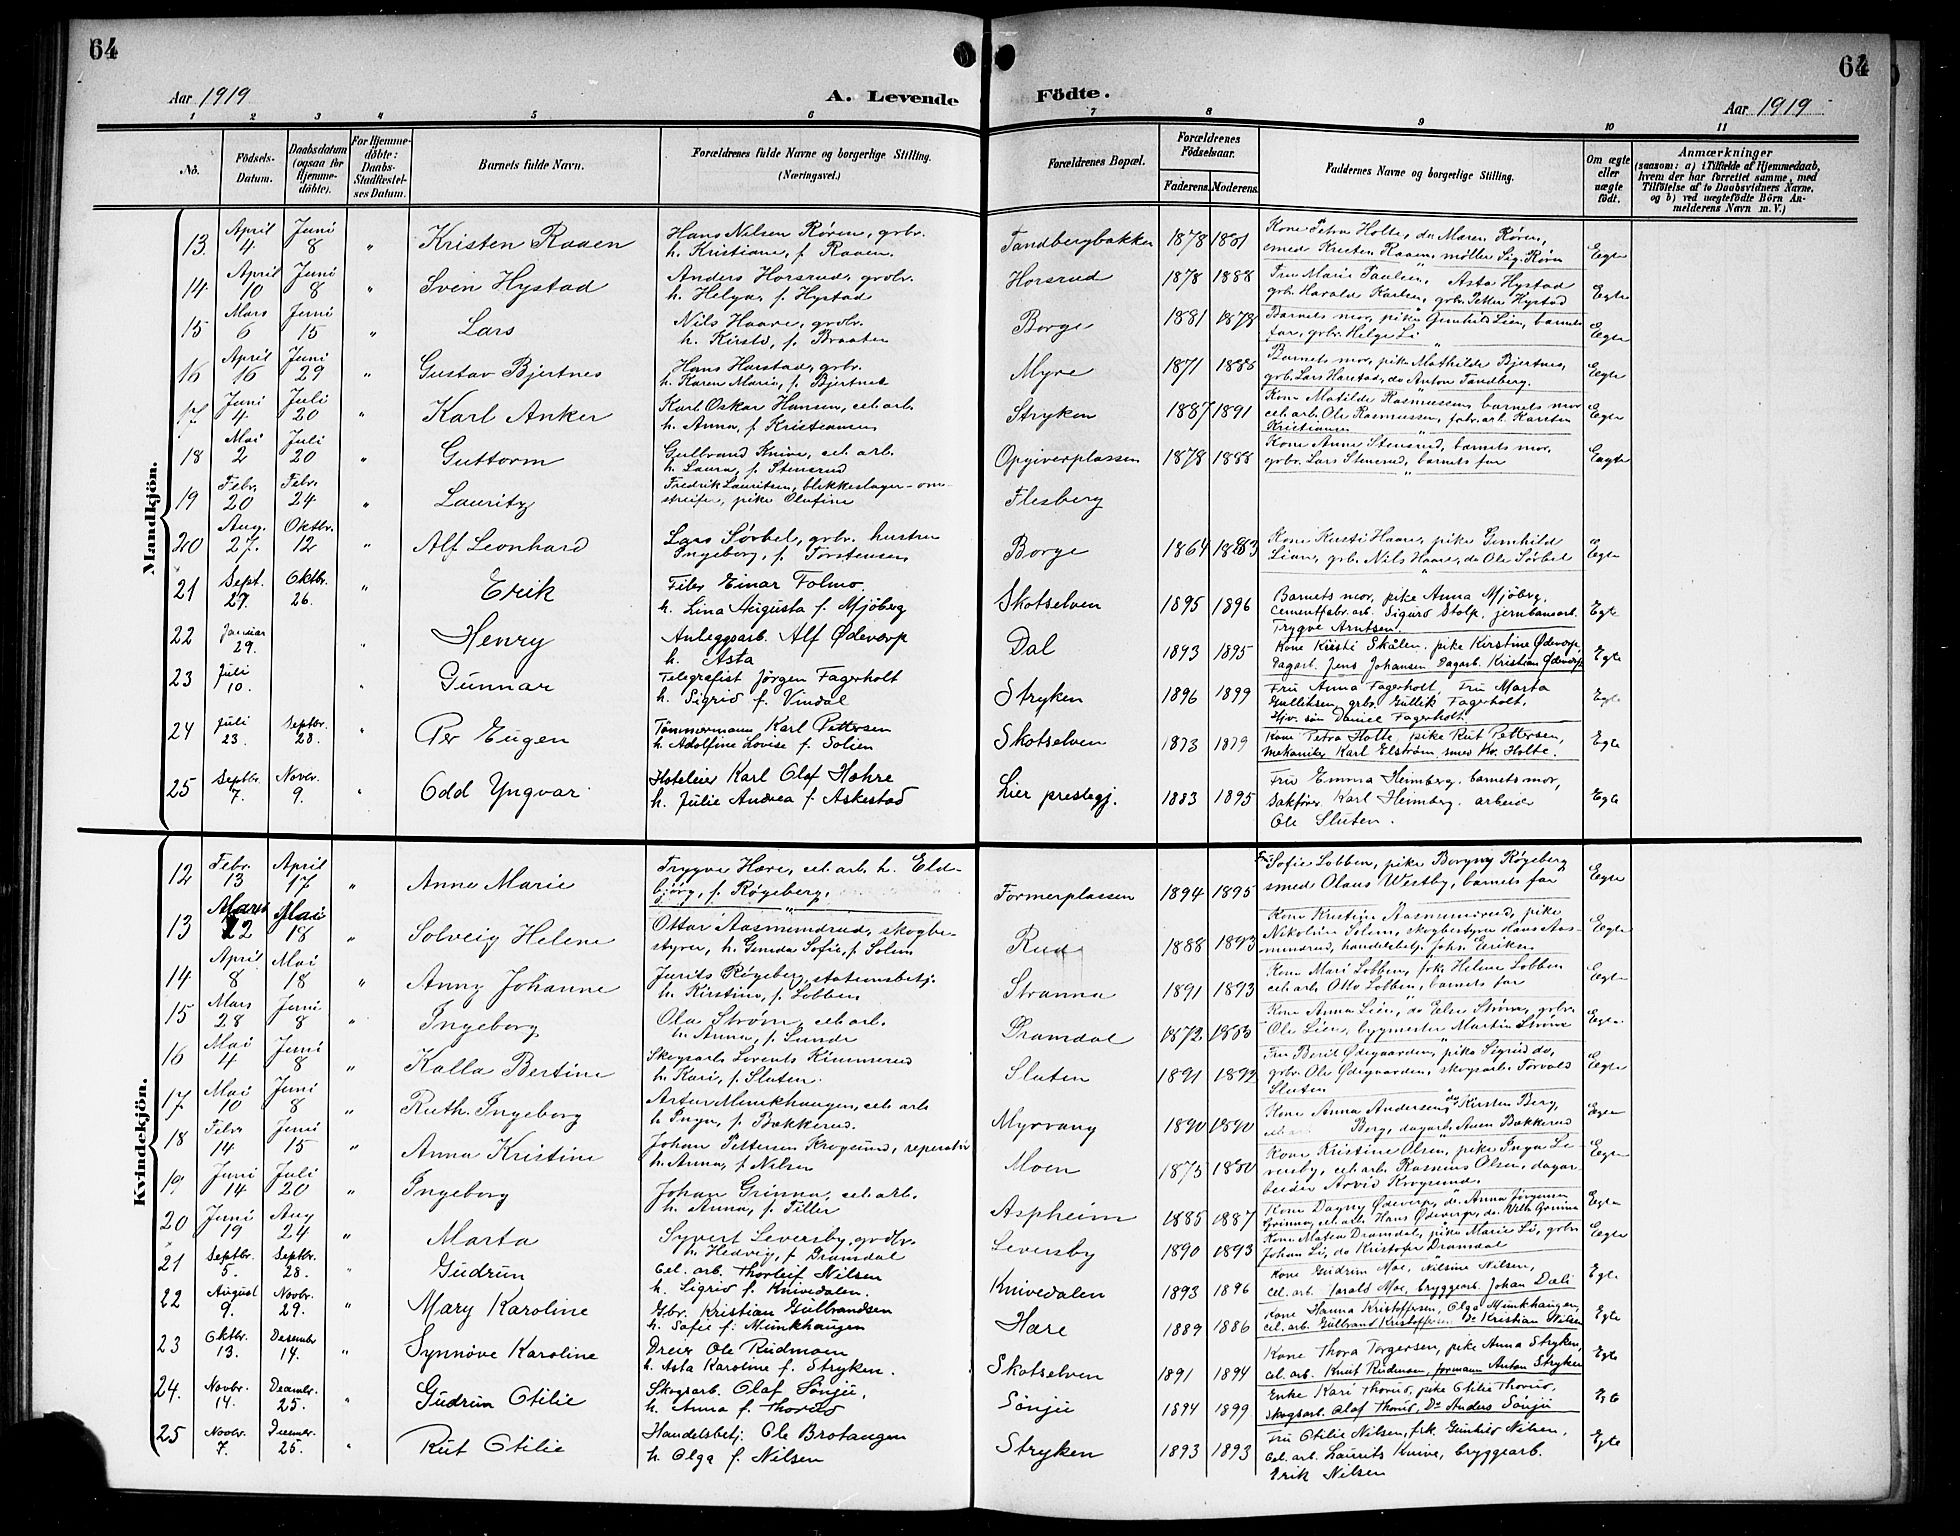 64
64
Aar 1919
A. Levende Födte.
Aar 1919
1 2 3 4 5 6 7 8 9 10 11
No.
Födsels-Datum.
Daabsdatum (ogsaa for Hjemmedöbte).
For Hjemmedöbte: Daabs-Stadfæstelses Datum.
Barnets fulde Navn.
Forældrenes fulde Navne og borgerlige Stilling. (Næringsvei.)
Forældrenes Bopæl.
Forældrenes Födselsaar.
Faderens. Moderens.
Faddernes Navne og borgerlige Stilling.
Om ægte eller uægte födt.
Anmærkninger
(saasom: a) i Tilfælde af Hjemmedaab, hvem der har forrettet samme, med Tilföielse af to Daabsvidners Navne, og b) ved uægtefödte Börn Anmelderens Navn m. V.)
Mandkjön.
13. April 4 Juni 8 " Kristen Raaen Hans Nilsen Røren, grbr. h. Kristiane, f. Raaen. Tandbergbakken 1878 1881 Kone Petra Holte, do Maren Røren, smed Kristen Raaen, møller Sig. Røren Egte
14 April 10 Juni 8 " Sven Hystad Anders Horsrud, grdbr. h. Helga, f. Hystad Horsrud 1878 1888 Fru Marie Paulsen, Asta Hystad grbr. Harald Karlsen, grbr. Petter Hystad Egte
15 Mars 6 Juni 15 " Lars Nils Haare, grdbr. h. Kirsti, f. Braaten Borge 1881 1878 Barnets mor, pike Gunhild Lien, barnets far, grbr. Helge Li Egte
16 April 16 Juni 29 " Gustav Bjertnes Hans Harstad, grbr. h. Karen Marie, f. Bjertnes Myre 1871 1885 Barnets mor, pike Mathilde Bjertnes, grbr. Lars Harstad, do Anton Tandberg. Egte
17 Juni 4 Juli 20 " Karl Anker Karl Oskar Hansen, cel. arb. h. Anna, f. Kristiansen Stryken 1887 1891 Kone Matilde Rasmussen, barnets mor cel. arb. Ole Rasmussen, fabr. arb. Karsten Kristiansen Egte
18 Mai 2 Juli 20 " Guttorm Gulbrand Knive, cel. arb. h. Laura, f. Stensrud Opgiverplassen 1878 1888 Kone Anne Stensrud, barnets mor, grbr. Lars Stensrud, barnets far Eagte
19 Febr. 20 Febr. 24 " Lauritz Fredrik Lauritsen, blikkeslager-omstreifer, pike Olufine Flesberg
20 Aug. 27. Oktbr. 12 " Alf Leonhard Lars Sörbel, grbr. hustru Ingeborg, f. Torstensen Borge 1864 1883 Kone Kirsti Haare, pike Gunhild Lien, grbr. Nils Haare, do Ole Sörbel Egte
21 Sept. 27. Oktbr. 26. " Erik Filer Einar Folmo h. Lina Augusta f. Mjöberg Skotselven 1895 1896 Barnets mor, pike Anna Mjöberg. Cementfabr. arb. Sigurd Stolp, jernbanearb. Trygve Arntsen. Egte
22 Januar 29. " Henry Anleggsarb. Alf Ødeværp h. Asta Dal 1893 1895 Kone Kristi Skålen. pike Kirstine Ødeværp. Dagarb. Jens Johansen Dagarb. Kristian Ødeværp Egte
23 Juli 10. " Gunnar Telegrafist Jörgen Fagerholt h. Sigrid f. Vindal Stryken 1896 1899 Fru Anna Fagerholt, Fru Marta Gulliksen, grbr. Gullik Fagerholt. Hjv. sön Daniel Fagerholt. Egte
24 Juli 23. Septbr. 28. " Per Eugen Tömmermann Karl Pettersen h. Adolfine Lovise f. Solien Skotselven 1873 1879 Kone Petra Holte, pike Rut Pettersen, mekaniker Karl Elström smed Kr. Holte. Egte
25 Septbr. 7. Novbr. 9. " Odd Yngvar. Hoteleier Karl Olaf Hohre h. Julie Andrea f. Askestad Lier prestegj. 1883 1895 Fru Emma Heimberg. barnets mor, Sakförer Karl Heimberg. arbeider Ole Sluten. Egte
Kvindekjön.
12 Febr. 13 April 17 " Anne Marie Trygve Hære, cel. arb. h. Eldbjörg, f. Røgeberg. Formerplassen 1894 1895 Fru Sofie Lobben, pike Borgny Røgeberg smed Olaus Westby, barnets far Egte
13 Mars 22 Mai 18 " Solveig Helene Ottar Aasmundrud, skogbestyrer, h. Gunda Sofie, f. Solem Rud 1888 1893 Kone Kristine Aasmundrud, pike Nikoline Solem, skogbestyrer Hans Aasmundrud, handelsbetj. Johs. Eriksen Egte
14 April 8 Mai 18 " Anny Johanne Jurits Røgeberg, stationsbetj. h. Kirstine, f. Lobben Stranna 1891 1893 Kone Mari Lobben, frk. Helene Lobben cel. arb. Otto Lobben, barnets far Egte
15 Mars 28 Juni 8 " Ingeborg Ola Ström, cel. arb. h. Anna, f. Lunde Dramdal 1872 1883 Kone Anna Lien, do Else Ström, grbr. Ole Lien, bygmester Martin Ström Egte
16 Mai 4 Juni 8 " Kalla Bertine Skogsarb. Lorents Kimmerud h. Kari, f. Sluten. Sluten 1891 1892 Fru Berit Ødegaarden, pike Sigrid do, grbr. Ole Ødegaarden, skogsarb. Torvald Sluten Egte
17 Mai 10 Juni 8 " Ruth Ingeborg Artur Munkhaugen, cel. arb. h. Inga, f. Bækkerud. Myrvang 1890 1890 Kone Anna Andersen, do Kirsten Berg, Berg, dagarb. Bækkerud Egte
18 Febr 14 Juni 15 " Anna Kristine Johan Pettersen Krogsund, reperatör h. Anna, f. Nilsen Moen 1875 1880 Kone Kristine Olsen, pike Inga Leversby, cel. arb. Rasmus Olsen, dagarbeider Arvid Krogsund. Egte
19 Juni 14 Juli 20 " Ingeborg Johan Grinna, cel. arb. h. Anna, f. Tiller Aspheim 1885 1887 Kone Dagny Ødeverp, do Anna Jörgensen Grinna, cel. arb. Hans Ødeverp, do Vilh. Grinna Egte
20 Juni 19 Aug 24 " Marta Syvert Leversby, grdbr. h. Hedvig, f. Dramdal Leversby 1890 1893 Kone Matea Dramdal, pike Marie Li, grbr. Johan Li, do Kristofer Dramdal Egte
21 Septbr. 5. Septbr. 28. " Gudrun Cel. arb. Thorleif Nilsen h. Sigrid f. Knivedalen. Knivedalen 1893 1896 Kone Gudrun Moe, Nilsine Nilsen, cel. arb. Harald Moe, bryggearb. Johan Dæli Egte
22 August 9. Novbr. 29. " Mary Karoline Gbr. Kristian Gulbrandsen h. Sofie f. Munkhaugen Hære 1889 1886 Kone Hanna Kristoffersen, Olga Munkhaugen, cel. arb. Gulbrand Kristoffersen Do Kristian Nilsen Egte
23 Oktbr. 13. Desember 14. " Synnöve Karoline Dreier Ole Rudmoen h. Asta Karoline f. Stryken. Skotselven 1891 1894 Kone Thora Torgersen, pike Anna Stryken, cel. arb. Knut Rudmoen, formann Anton Stryken Egte
24. Novbr. 14. Decmbr. 25. " Gudrun Otilie Skogsarb. Olaf Sönju, h. Anna f. Thorud Sönju 1894 1899 Enke Kari Thorud, pike Otilie Thorud, skogsarb. Olaf Thorud, Do Anders Sönju Egte
25 Novbr. 7. Decmbr. 26. " Rut Otilie Handelsbetj. Ole Brotangen h. Olga f. Nilsen Stryken 1893 1893 Fru Otilie Nilsen, frk. Gunhild Nilsen, Cel. arb. Laurits Knive, bryggearb. Erik Nilsen Egte